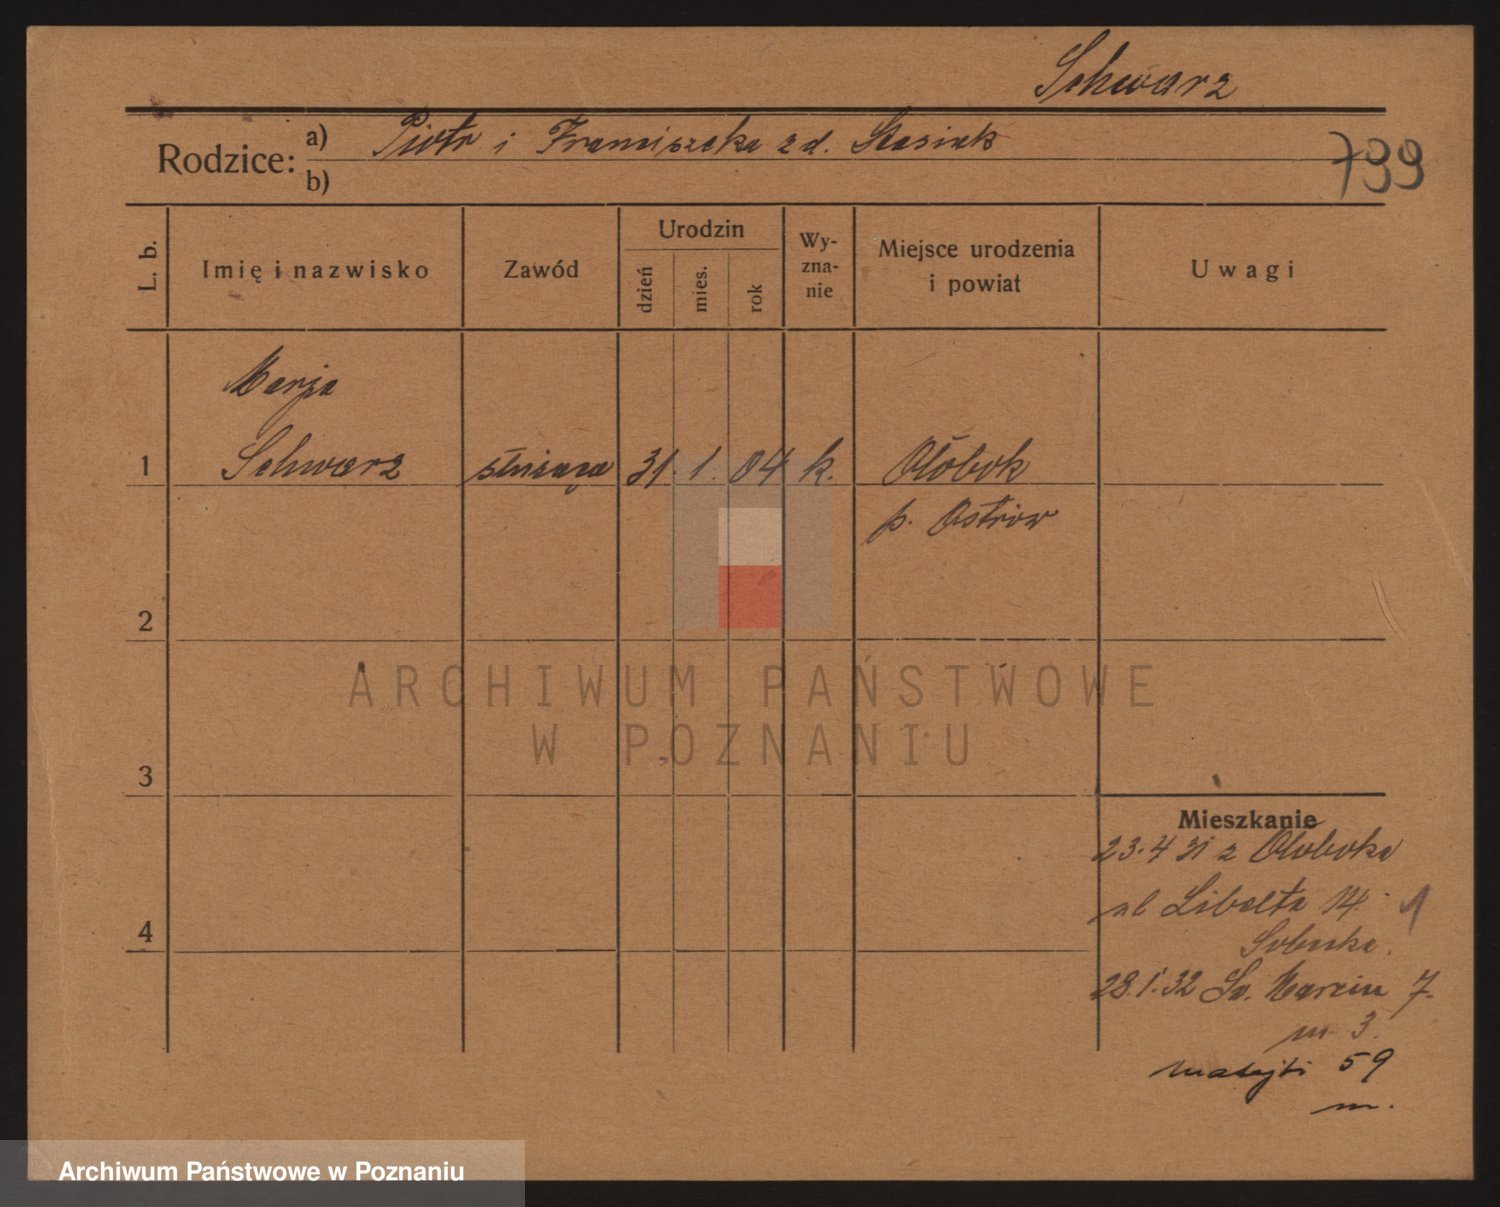 Schwarz
Rodzice: a) Piotr i Franciszka z d. Stasiak
b)
799
L. b. Imię i nazwisko Zawód Urodzin dzień mies. rok Wy-zna-nie Miejsce urodzenia i powiat Uwagi
Marja
1 Schwarz służąca 31. 1. 04 k. Ołobok
p. Ostrów
2
ARCHIWUM PAŃSTWOWE
W POZNANIU
3
Mieszkanie
23.4 31 z Ołoboka
ul Libelta 14. 1
4
28.1.32 Św. Marcin 7.
m 3.
Matejki 59
m.
Archiwum Państwowe w Poznaniu